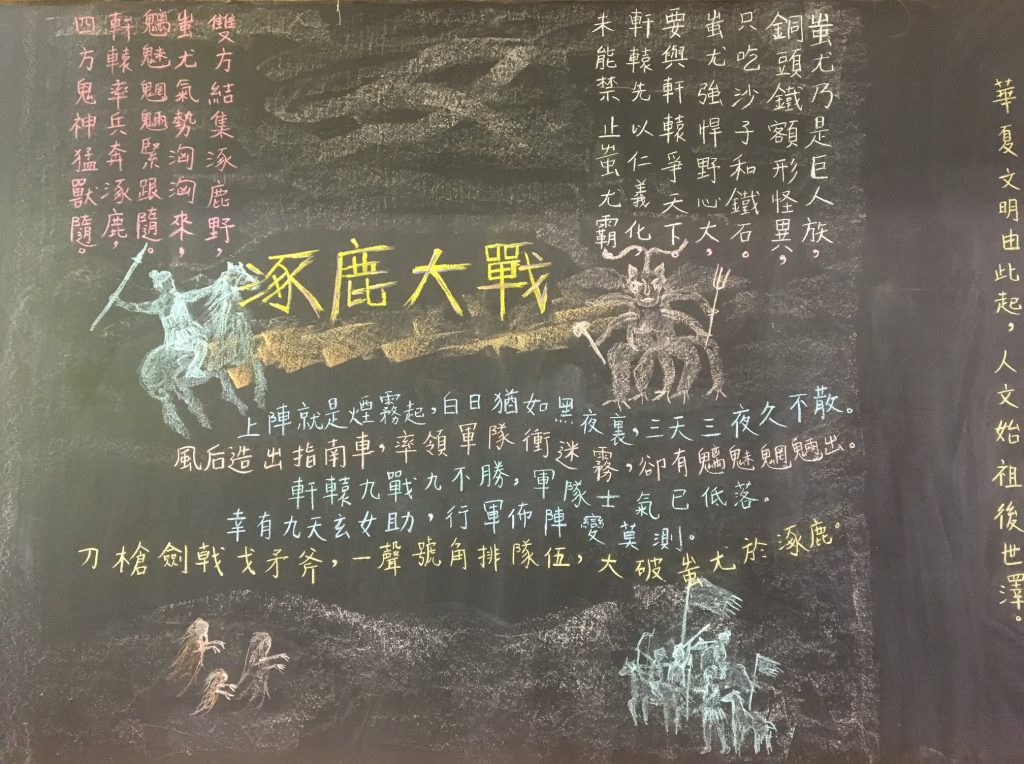 蚩尤乃是巨人族，
銅頭鐵額形怪異，
只吃沙子和鐵石。
蚩尤強悍野心大，
要與軒轅爭天下。
軒轅先以仁義化，
未能禁止蚩尤霸，
雙方結集涿鹿野，
蚩尤氣勢洶洶來，
魑魅魍魎緊跟隨。
軒轅率兵奔涿鹿，
四方鬼神猛獸隨。
涿鹿大戰
上陣就是煙霧起，白日猶如黑夜裏，三天三夜久不散。
風后造出指南車，率領軍隊衝迷霧，卻有魑魅魍魎出。
軒轅九戰九不勝，軍隊士氣已低落。
幸有九天玄女助，行軍佈陣變莫測。
刀槍劍戟戈矛斧，一聲號角排隊伍，大破蚩尤於涿鹿。
華夏文明由此起，人文始祖後世澤。